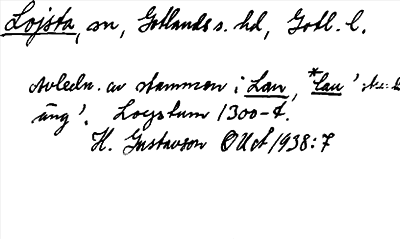 Lojsta, sn, Gotlands s. hd, Gotl. l.
Avledn. av stammen i Lau, *lau '
äng'. Logstum 1300-t.
H. Gustavson OUÅ 1938:7